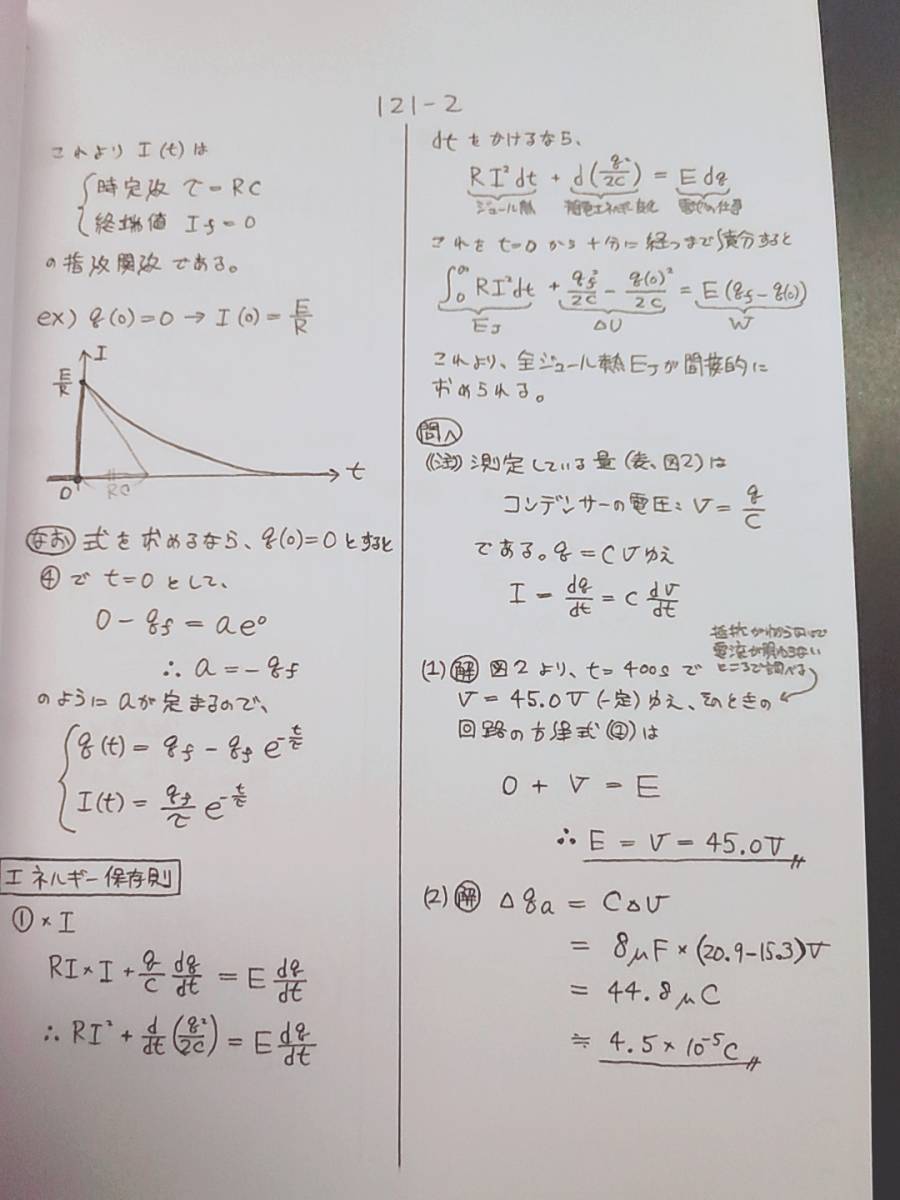 121-2
これより I(t)は
時定数 τ=RC
終端値 If=0
の指数関数である。
ex) q(0)=0→I(0)=E/R
I
E/R
0
RC
t
なお 式を求めるなら、q(0)=0とすると
④で t=0として、
0-qf=ae⁰
∴a=-qf
のようにaが定まるので、
q(t)=qf-qf e^(-t/τ)
I(t)=qf/τ e^(-t/τ)
エネルギー保存則
①×I
RI×I+q/C dq/dt=E dq/dt
∴RI²+d/dt(q²/2C)=E dq/dt
dtをかけるなら、
RI²dt+d(q²/2C)=Edq
ジュール熱 静電エネルギー変化 電池の仕事
これをt=0から十分に経つまで積分すると
∫₀^∞ RI²dt+qf²/2C-q(0)²/2C=E(qf-q(0))
EJ ΔU W
これより、全ジュール熱EJが間接的に
求められる。
問へ
(注) 測定している量(表、図2)は
コンデンサーの電圧:V=q/C
である。q=CVゆえ
I=dq/dt=C dV/dt
抵抗がわからないので
電流が流れない
ところで調べる
(1) 解 図2より、t=400sで
V=45.0V(一定)ゆえ、そのときの
回路の方程式(②)は
0+V=E
∴E=V=45.0V
(2) 解 Δqa=CΔV
=8μF×(20.9-15.3)V
=44.8μC
≒4.5×10⁻⁵C